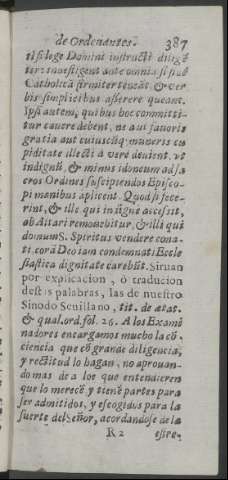 de Ordenantes. 387
ti si lege Domini instructi diligẽ
ter inuestigent ante omnia si fidẽ
Catholicã firmiter teneãt, & ver
bis simplicibus asserere queant.
Ipsi autem, quibus hoc committi-
tur cauere debent, ne aut fauoris
gratia aut cuiuscũq; muneris cu
piditate illecti à vero deuient, vt
indignũ, & minus idoneum ad sa
cros Ordines suscipiendos Episco-
pi manibus aplicent. Quod si fece-
rint, & ille qui indignè accessit,
ab Altari remouebitur, & illi qui
donum S. Spiritus vendere cona-
ti corã Deo iam condemnati Eccle
siastica dignitate carebũt. Siruan
por explicacion, ò traducion
destas palabras, las de nuestro
Sinodo Seuillano, tit. de ætat.
& qual. ord. fol. 26. A los Exami
nadores encargamos mucho la cõ
ciencia que cõ grande diligencia,
y rectitud lo hagan, no aprouan-
do mas de a los que entendieren
que lo merecẽ y tienẽ partes para
ser admitidos, y escogidos para la
suerte del Señor, acordandose de la
R 2 estre-